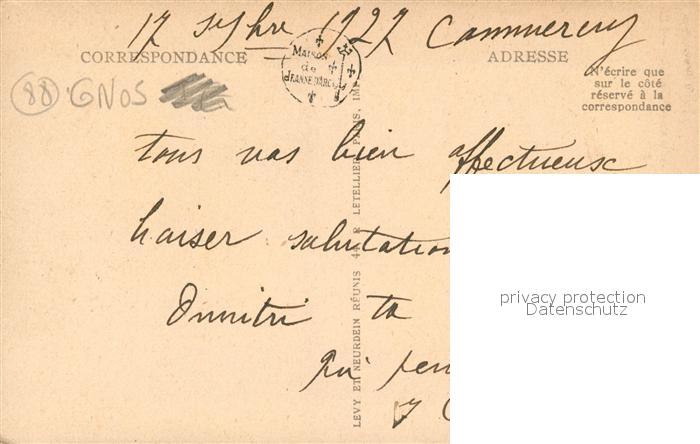 17 1927 Commercy
CORRESPONDANCE
ADRESSE
MAISON
de
JEANNE D'ARC
N'écrire que
sur le côté
réservé à la
correspondance
88 GNOS
tous vos bien affectueux
baiser salutation
ta
qui
LEVY ET NEURDEIN RÉUNIS 44 R LETELLIER PARIS, IMP
privacy protection
Datenschutz